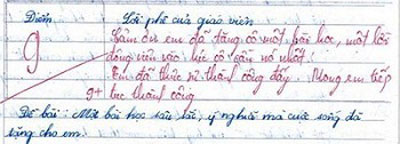 Điểm Lời phê của giáo viên
9 Cảm ơn em đã tặng cô một bài học, một lời
động viên vào lúc cô cần nó nhất!
Em đã thực sự thành công đấy. Mong em tiếp
9+ tục thành công
Đề bài: Một bài học sâu sắc, ý nghĩa mà cuộc sống đã
tặng cho em.